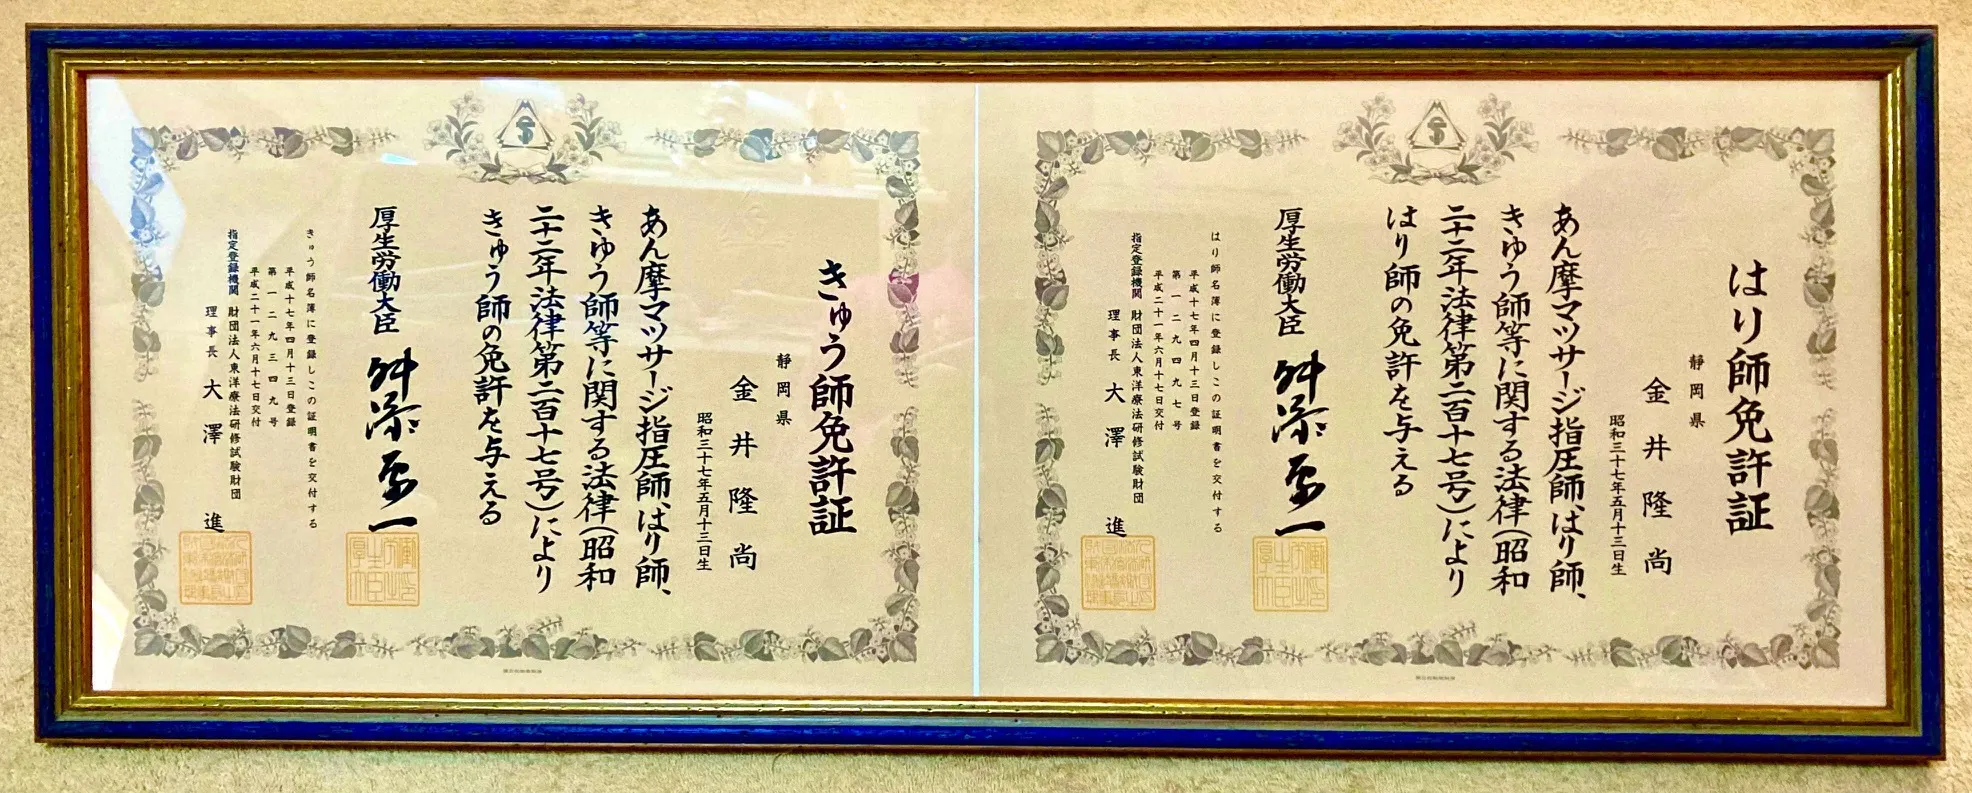 はり師免許証
静岡県
金井隆尚
昭和三十七年五月十三日生
あん摩マツサージ指圧師、はり師、
きゆう師等に関する法律(昭和
二十二年法律第二百十七号)により
はり師の免許を与える
厚生労働大臣 舛添要一
はり師名簿に登録しこの証明書を交付する
平成十七年四月十三日登録
第一二九四九七号
平成二十一年六月十七日交付
指定登録機関 財団法人東洋療法研修試験財団
理事長 大澤進
きゅう師免許証
静岡県
金井隆尚
昭和三十七年五月十三日生
あん摩マツサージ指圧師、はり師、
きゆう師等に関する法律(昭和
二十二年法律第二百十七号)により
きゅう師の免許を与える
厚生労働大臣 舛添要一
きゅう師名簿に登録しこの証明書を交付する
平成十七年四月十三日登録
第一二九三四九号
平成二十一年六月十七日交付
指定登録機関 財団法人東洋療法研修試験財団
理事長 大澤進